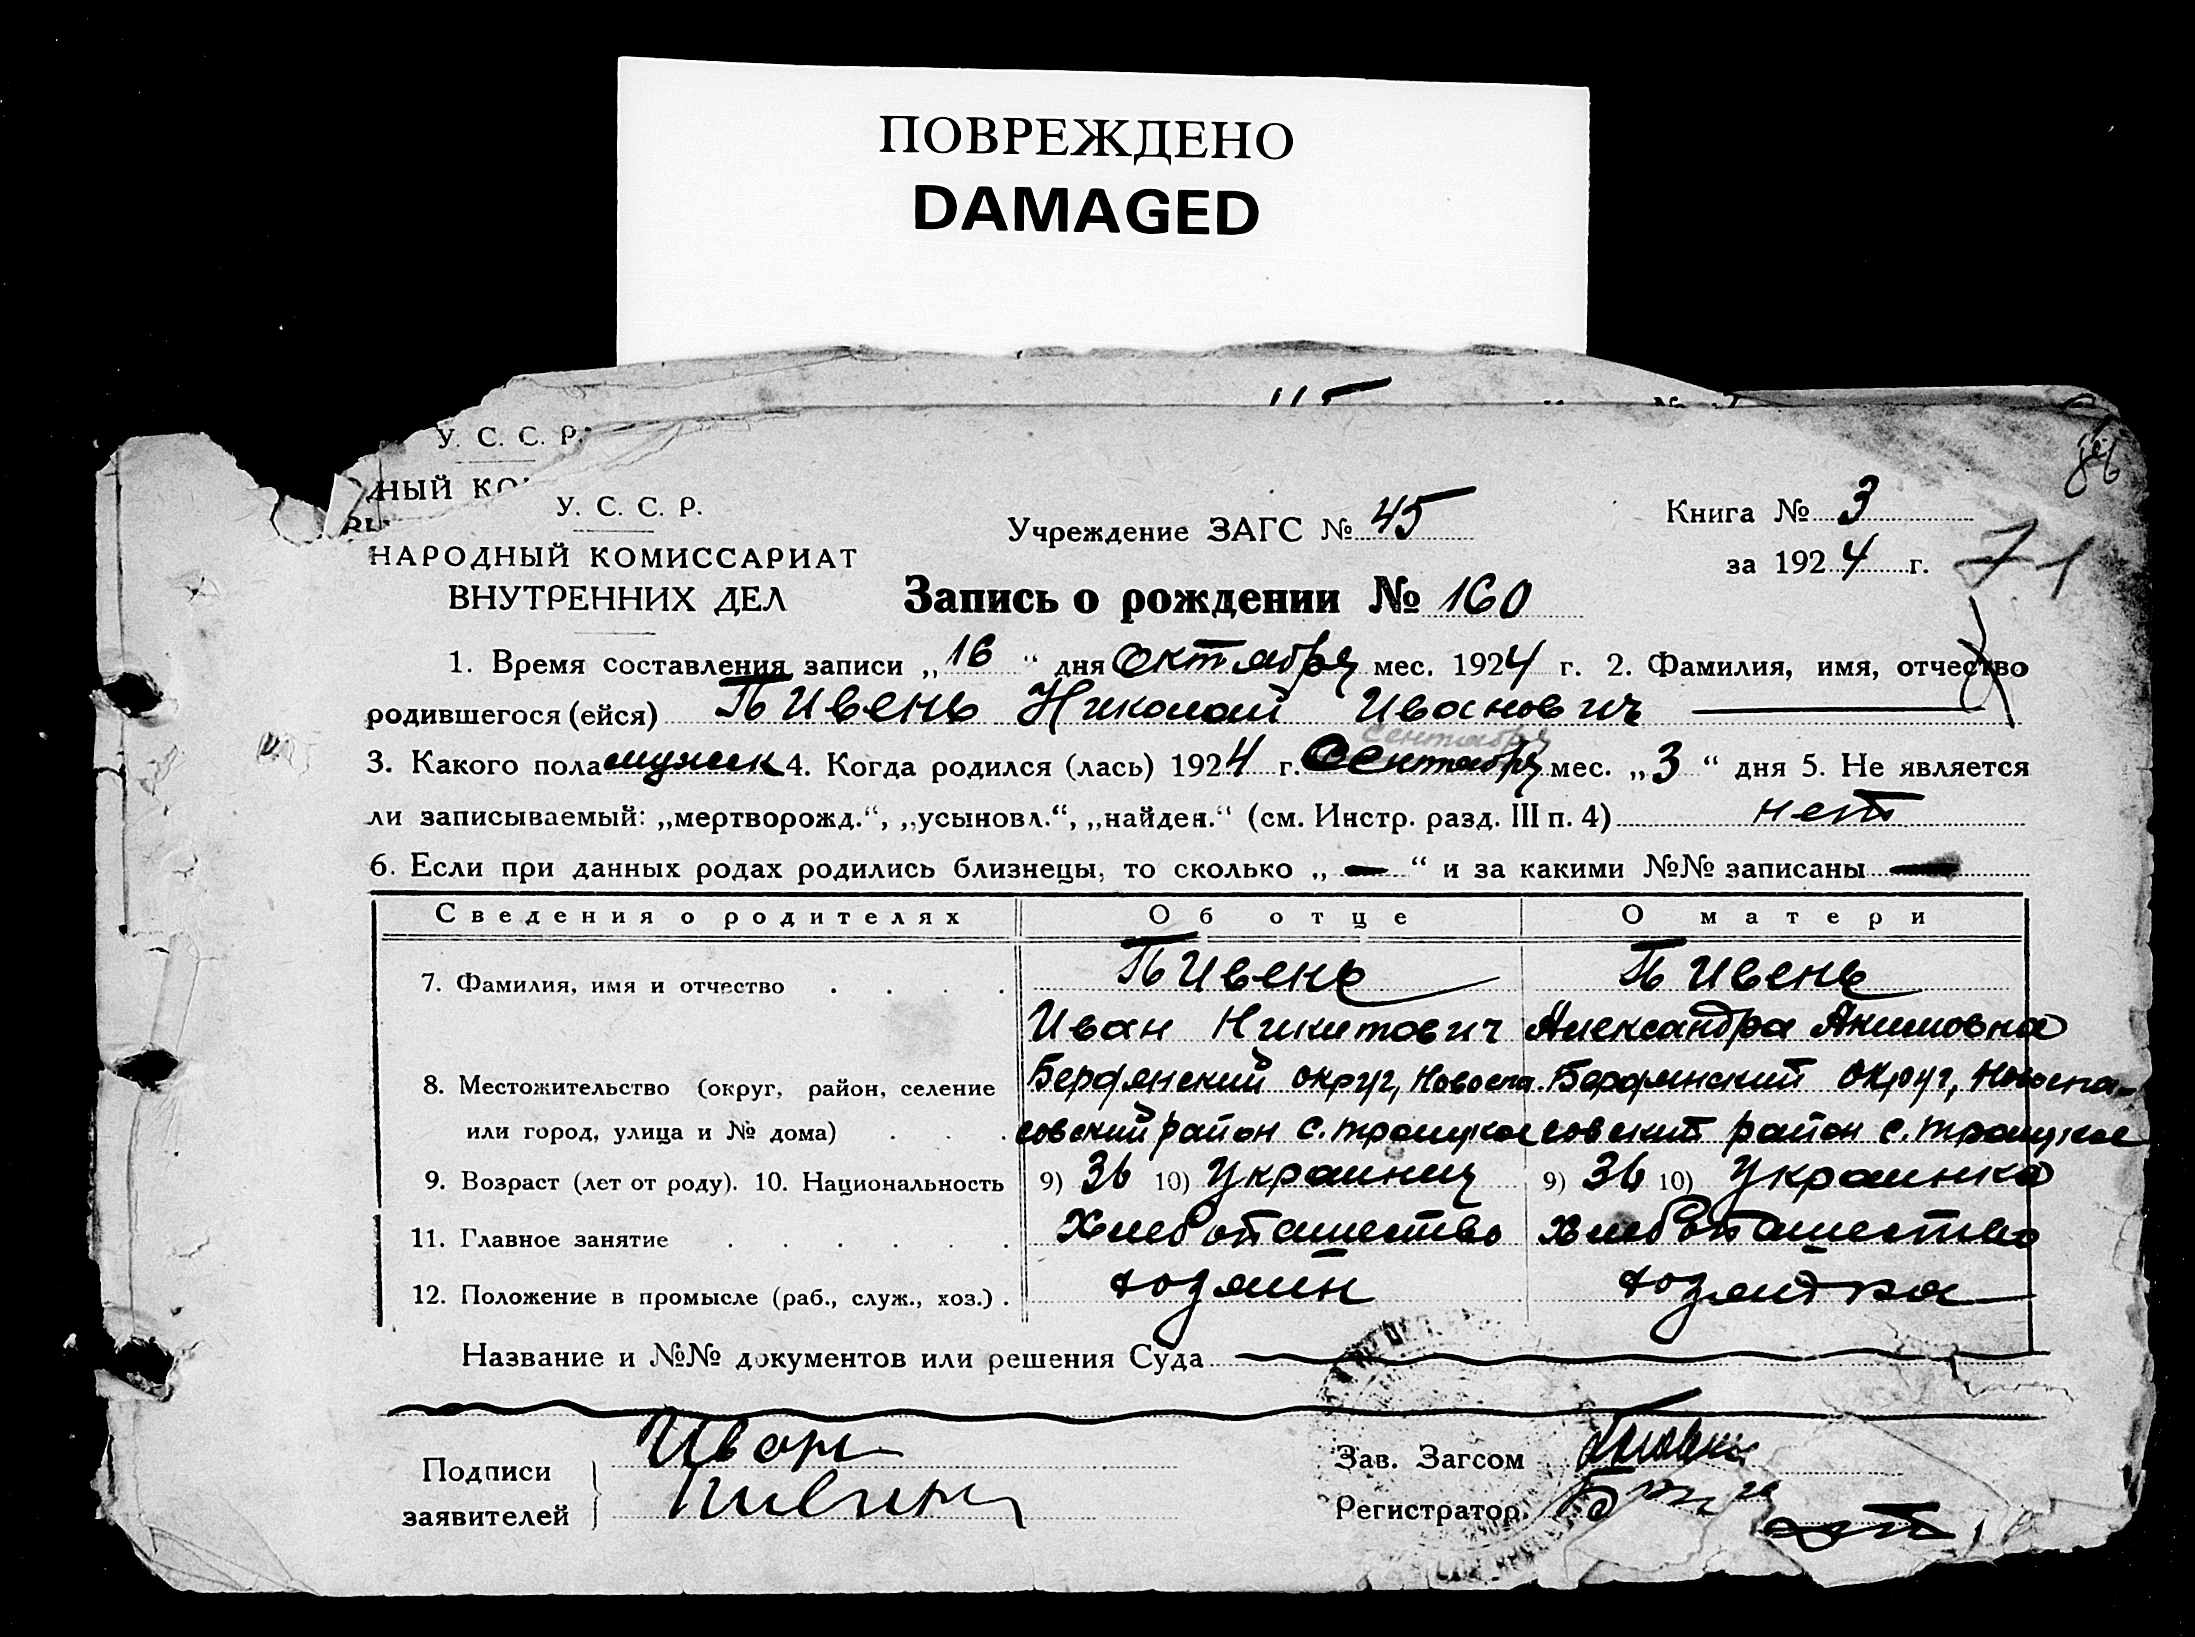 ПОВРЕЖДЕНО
DAMAGED
115
У. С. С. Р.
НЫЙ КО
У. С. С. Р.
НАРОДНЫЙ КОМИССАРИАТ
ВНУТРЕННИХ ДЕЛ
Учреждение ЗАГС № 45
Книга № 3
за 1924 г.
71
Запись о рождении № 160
1. Время составления записи „16“ дня Октября мес. 1924 г. 2. Фамилия, имя, отчество
родившегося (ейся) Пивень Николай Иванович
сентябрь
3. Какого пола мужск 4. Когда родился (лась) 1924 г. Сентября мес. „3“ дня 5. Не является
ли записываемый: „мертворожд.“, „усыновл.“, „найден.“ (см. Инстр. разд. III п. 4) нет
6. Если при данных родах родились близнецы, то сколько „ — “ и за какими №№ записаны —
Сведения о родителях Об отце О матери
7. Фамилия, имя и отчество . . . . Пивень Пивень
Иван Никитович Александра Акимовна
8. Местожительство (округ, район, селение Бердянский округ, Новоспа Бердянский округ, Новоспа-
или город, улица и № дома) . . . совский район с. Троицкое совский район с. Троицкое
9. Возраст (лет от роду). 10. Национальность 9) 36 10) Украинец 9) 36 10) Украинка
11. Главное занятие . . . . . . Хлебопашество Хлебопашество
12. Положение в промысле (раб., служ., хоз.) . хозяин хозяйка
Название и №№ документов или решения Суда
Подписи заявителей } Иван
Пивень
Зав. Загсом
Регистратор